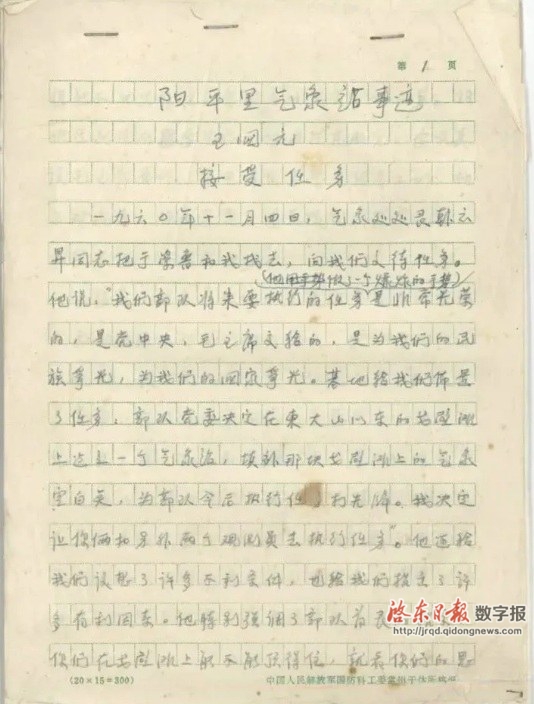 第 1 页
阳平里气象站事迹
王国元
接受任务
一九六〇年十一月四日，气象处处长韩云
昇同志把于学普和我找去，向我们交待任务。
（他用手势做了一个爆炸的手势）
他说，“我们部队将来要执行的任务是非常光荣
的，是党中央，毛主席交给的，是为我们的民
族争光，为我们的国家争光。基地给我们布置
了任务，部队党委决定在東大山以东的戈壁滩
上建立一个气象站，填补那块戈壁滩上的气象
空白点，为部队今后执行任打先锋。我决定
让你俩和另外两个观测员去执行任务”。他还给
我们设想了许多不利条件，也给我们指出了许
多有利因素。他特别强调了部队首长
你们在戈壁滩上能不能顶得住，就看你们的思
(20×15=300)
中国人民解放军国防科工委
启东日报 数字报
http://jrqd.qidongnews.com